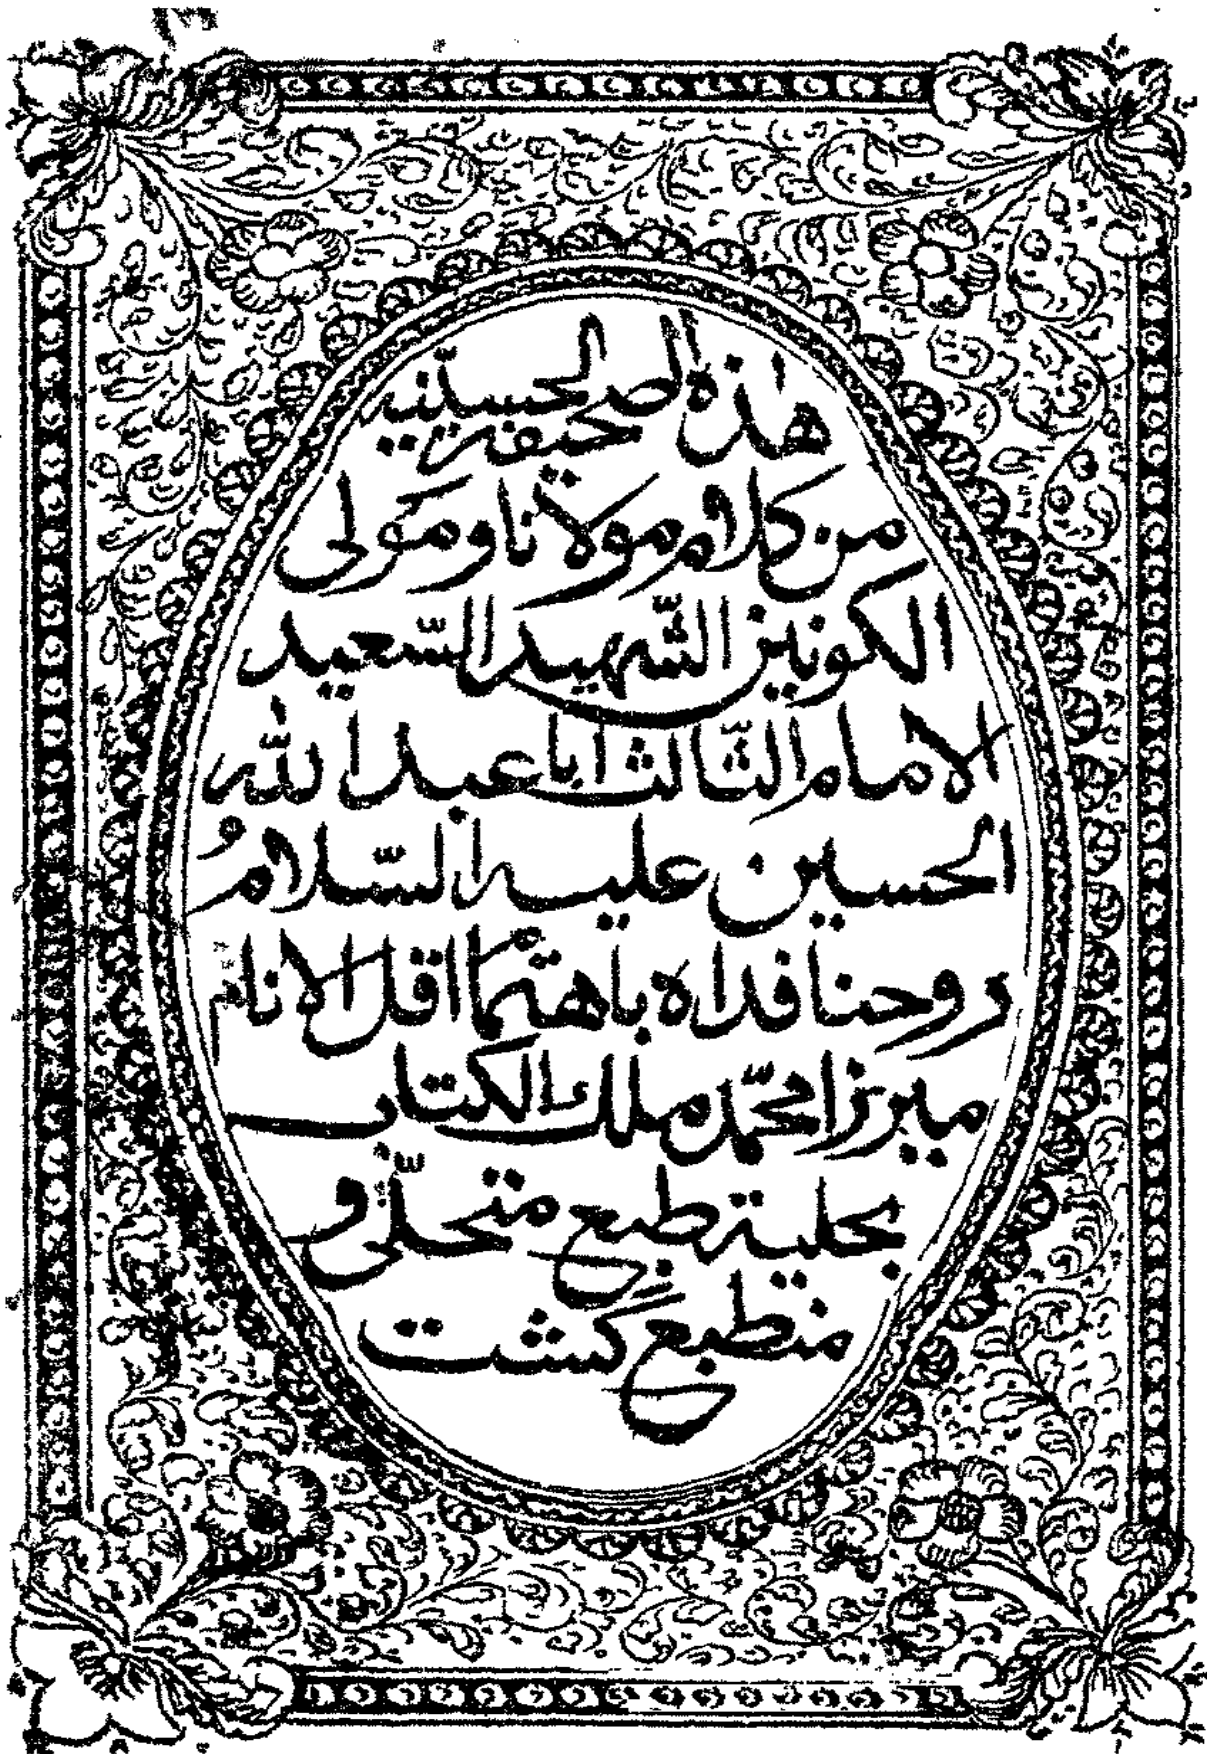 هذه الصحیفة الحسینیه
من کلام مولانا ومولی
الکونین الشّهید السّعید
الامام الثّالث اباعبدالله
الحسین علیه السّلامُ
روحنا فداه باهتمام اقل الانام
میرزا محمّد ملك الکتاب
بحلیة طبع متحلّی و
منطبع کشت